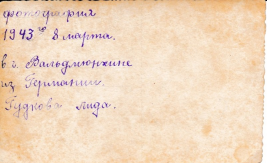 фотография
1943 го 8 марта.
в г. Вальдмюнхине
из Германии.
Гудкова Лида.